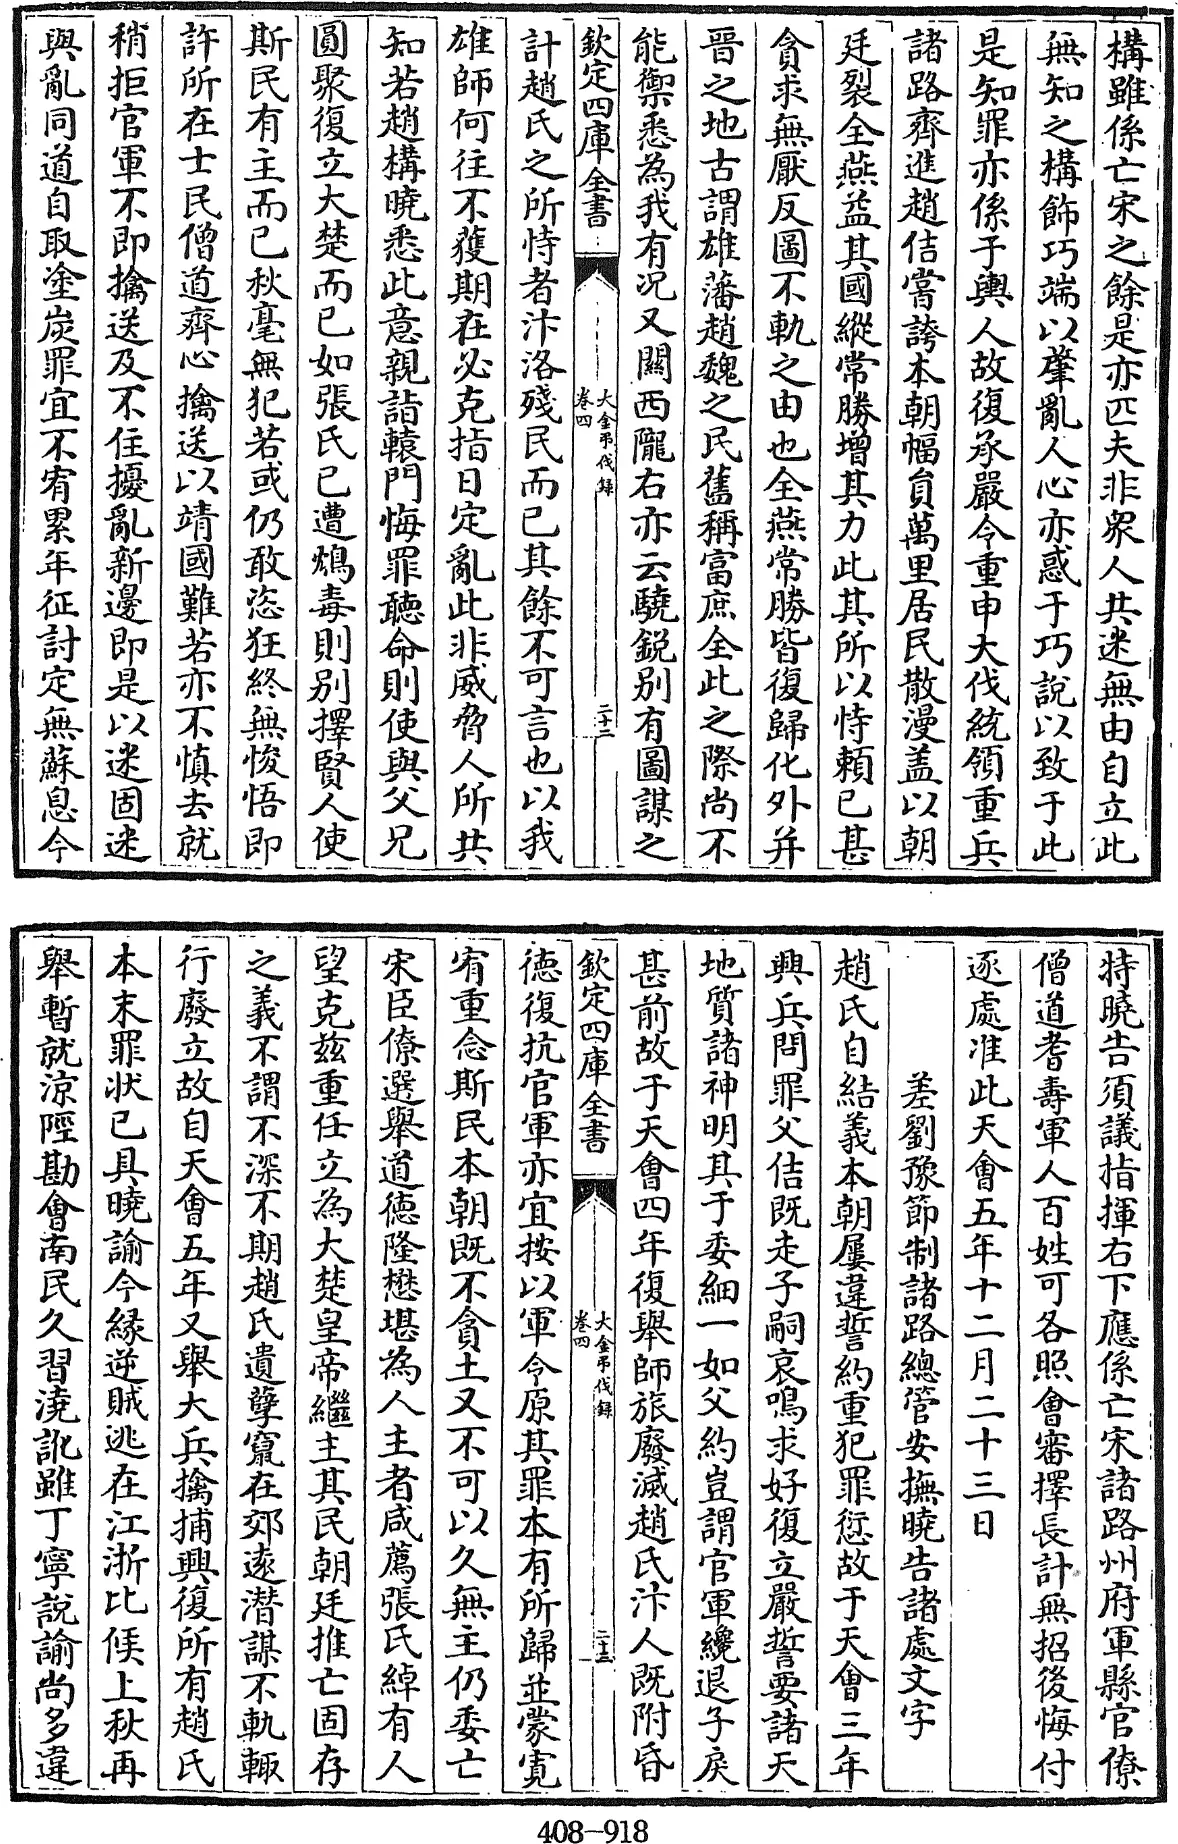 構雖係亡宋之餘是亦匹夫非衆人共迷無由自立此
無知之構飾巧端以肇亂人心亦惑于巧說以致于此
是知罪亦係于輿人故復承嚴令重申大伐統領重兵
諸路齊進趙佶嘗誇本朝幅員萬里居民散漫盖以朝
廷裂全燕益其國縱常勝增其力此其所以恃頼已甚
貪求無厭反圖不軌之由也全燕常勝皆復歸化外并
晉之地古謂雄藩趙魏之民舊稱富庶全此之際尚不
能禦悉為我有况又關西隴右亦云驍鋭别有圖謀之
欽定四庫全書
大金弔伐録
卷四
二十二
計趙氏之所恃者汴洛殘民而已其餘不可言也以我
雄師何往不獲期在必克指日定亂此非威脅人所共
知若趙構曉悉此意親詣轅門悔罪聽命則使與父兄
圓聚復立大楚而已如張氏已遭鴆毒則别擇賢人使
斯民有主而已秋毫無犯若或仍敢恣狂終無悛悟即
許所在士民僧道齊心擒送以靖國難若亦不慎去就
稍拒官軍不即擒送及不住擾亂新邊即是以迷固迷
與亂同道自取塗炭罪宜不宥累年征討定無蘇息今
特曉告須議指揮右下應係亡宋諸路州府軍縣官僚
僧道耆壽軍人百姓可各照會審擇長計無招後悔付
逐處准此天會五年十二月二十三日
差劉豫節制諸路總管安撫曉告諸處文字
趙氏自結義本朝屢違誓約重犯罪愆故于天會三年
興兵問罪父佶既走子嗣哀鳴求好復立嚴誓要諸天
地質諸神明其于委細一如父約豈謂官軍纔退子戾
甚前故于天會四年復舉師旅廢滅趙氏汴人既附昏
欽定四庫全書
大金弔伐録
卷四
二十三
德復抗官軍亦宜按以軍令原其罪本有所歸並蒙寛
宥重念斯民本朝既不貪土又不可以久無主仍委亡
宋臣僚選舉道德隆懋堪為人主者咸薦張氏綽有人
望克兹重任立為大楚皇帝繼主其民朝廷推亡固存
之義不謂不深不期趙氏遺孽竄在郊逺潜謀不軌輙
行廢立故自天會五年又舉大兵擒捕興復所有趙氏
本末罪状已具曉諭今縁逆賊逃在江浙比候上秋再
舉暫就涼陘勘會南民久習澆訛雖丁寧說諭尚多違
408-918